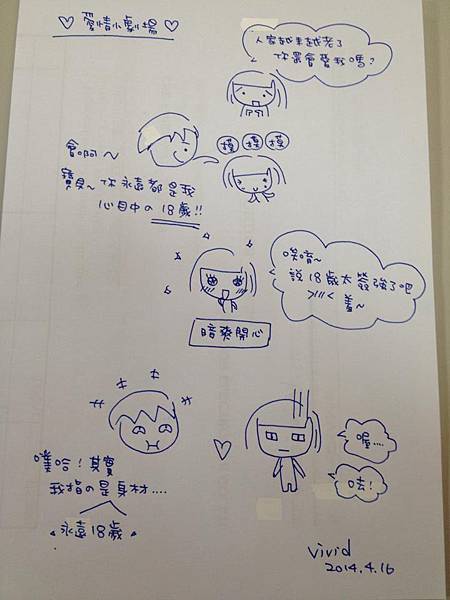 ♡ 愛情小劇場 ♡
人家越來越老了
你還會愛我嗎？
會啊～
摸 摸 摸
寶貝～你永遠都是我
心目中の18歲!!
唉唷～
說18歲太誇張了吧
>///< 羞～
暗爽開心
噗哈！其實
我指の是身材....
永遠18歲
喔....
呿！
vivid
2014.4.16